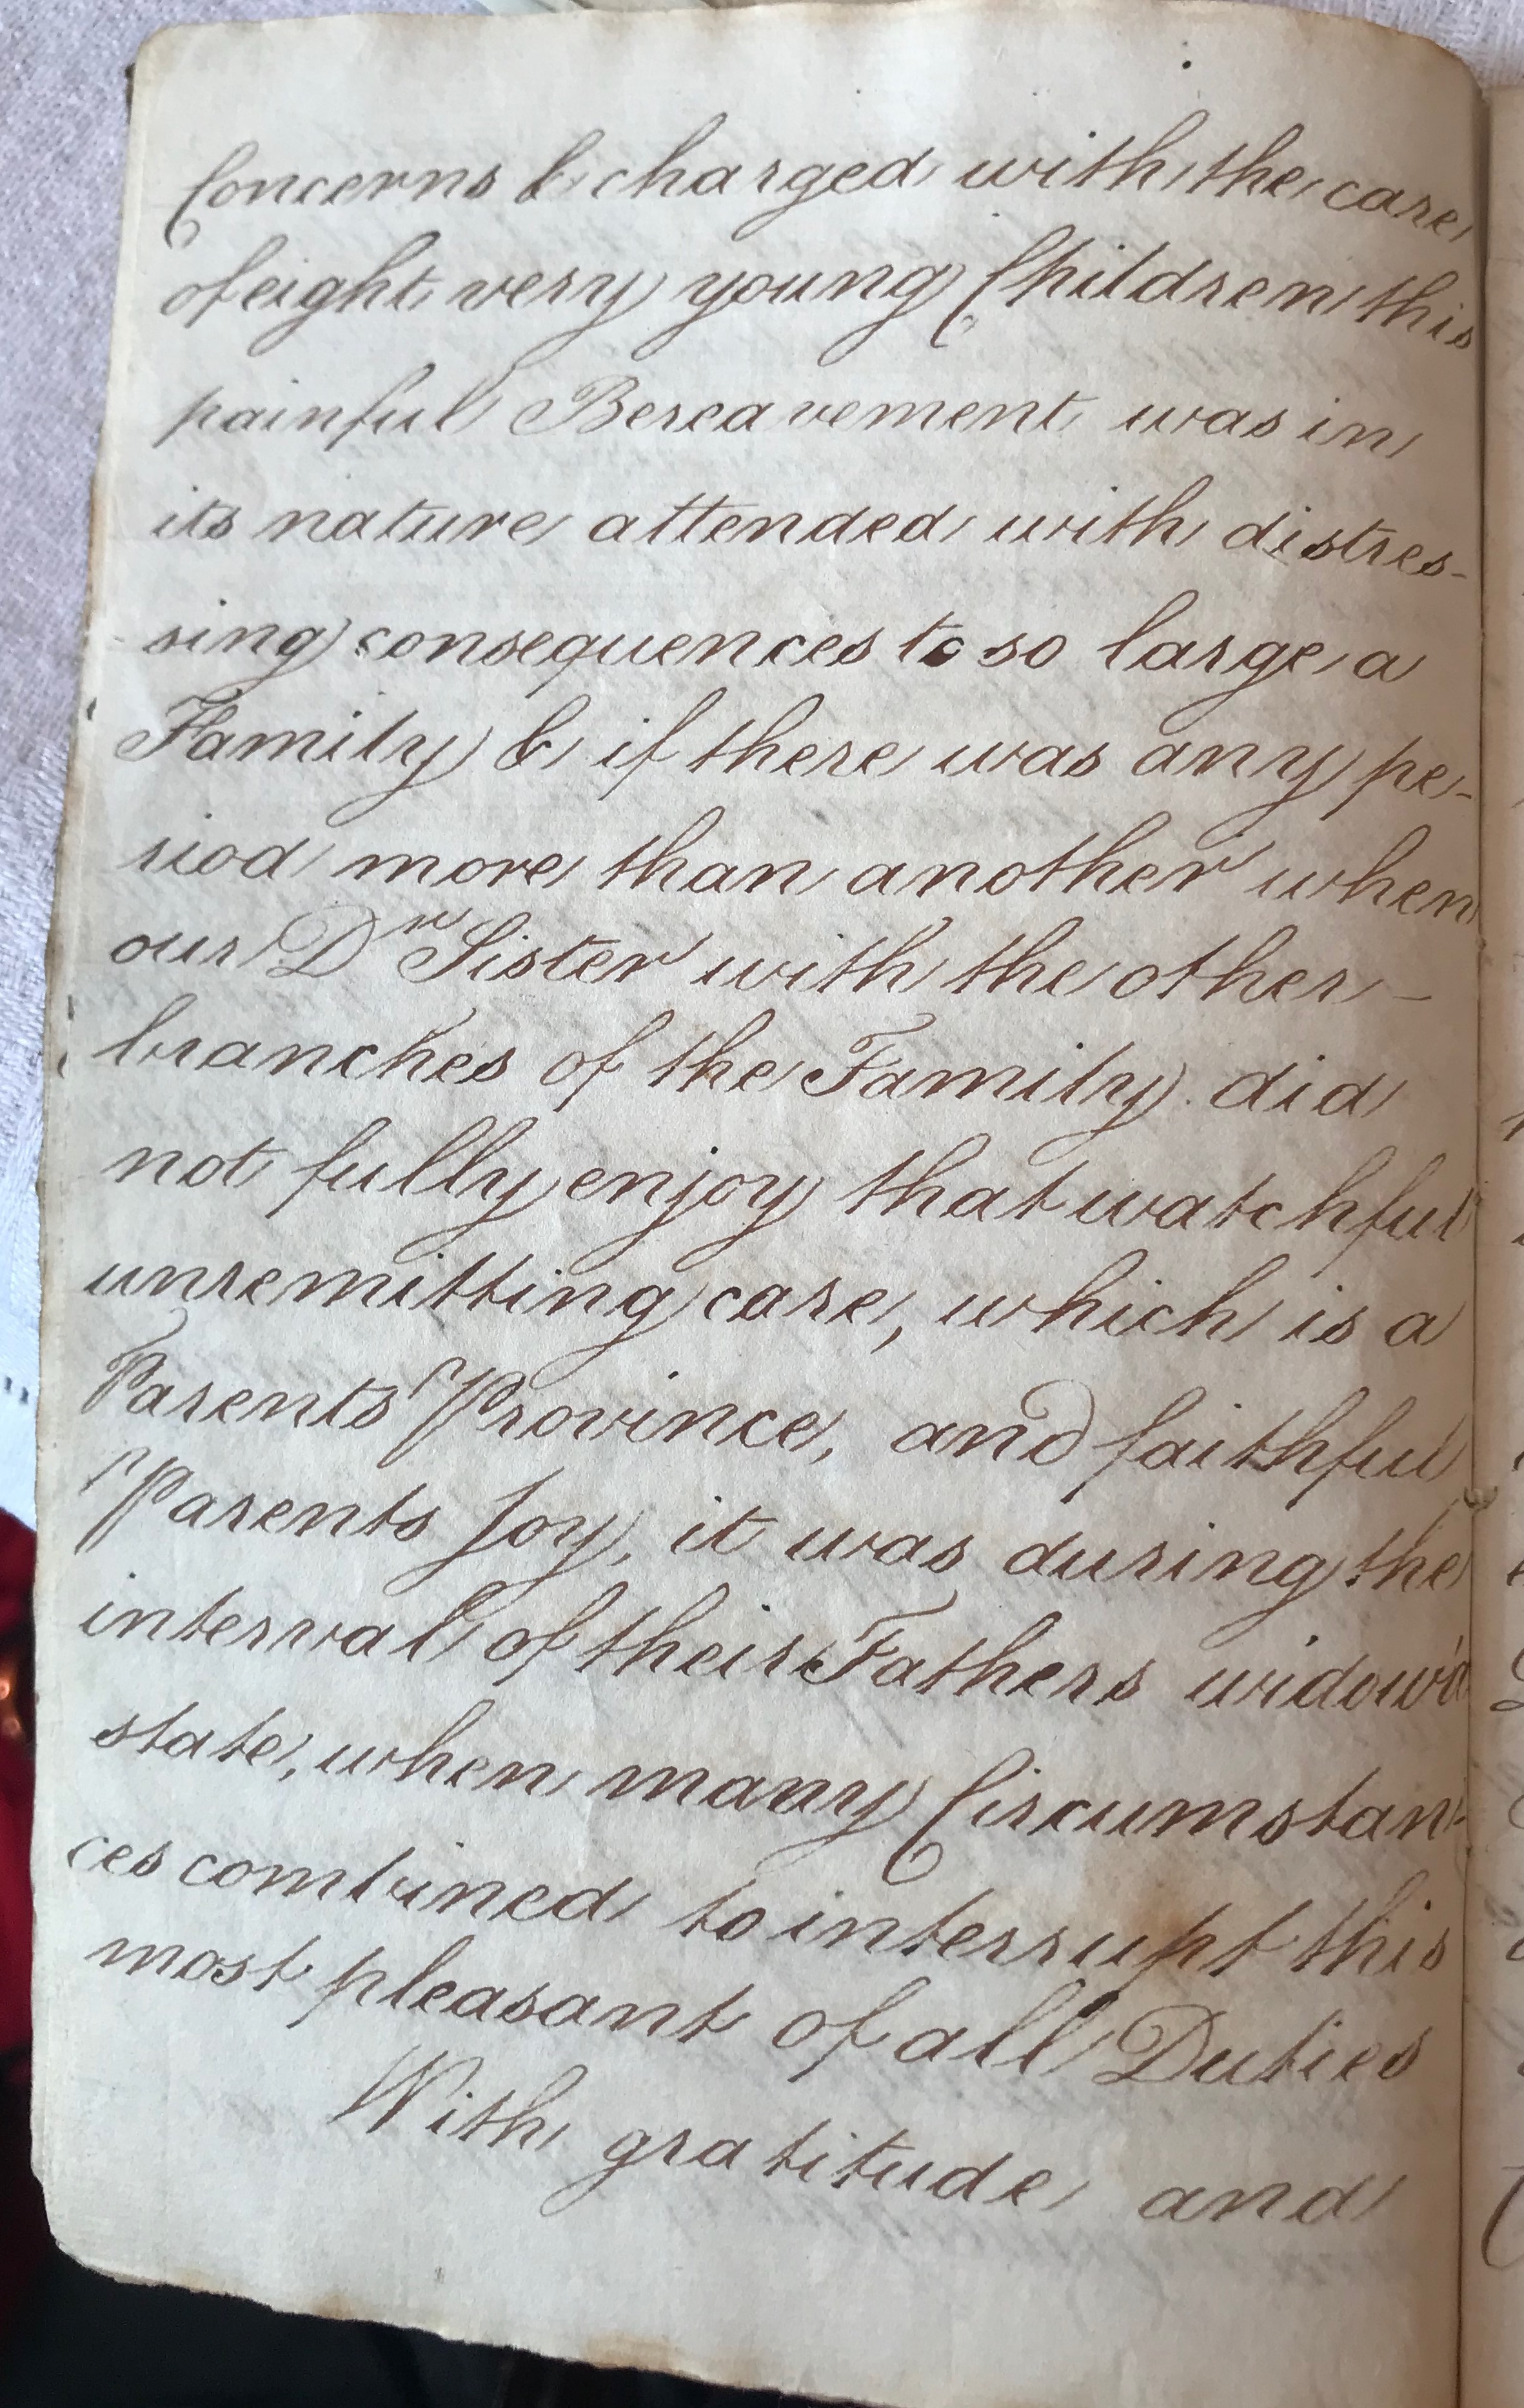 Concerns & charged with the care
of eight very young Children this
painful Bereavement was in
its nature attended with distres-
sing consequences to so large a
Family & if there was any pe-
riod more than another when
our Dr Sister with the other -
branches of the Family did
not fully enjoy that watchful
unremitting care, which is a
Parents Province, and faithful
Parents Joy, it was during the
interval of their Fathers widow'd
state, when many Circumstan-
ces combined to interrupt this
most pleasant of all Duties
With gratitude and